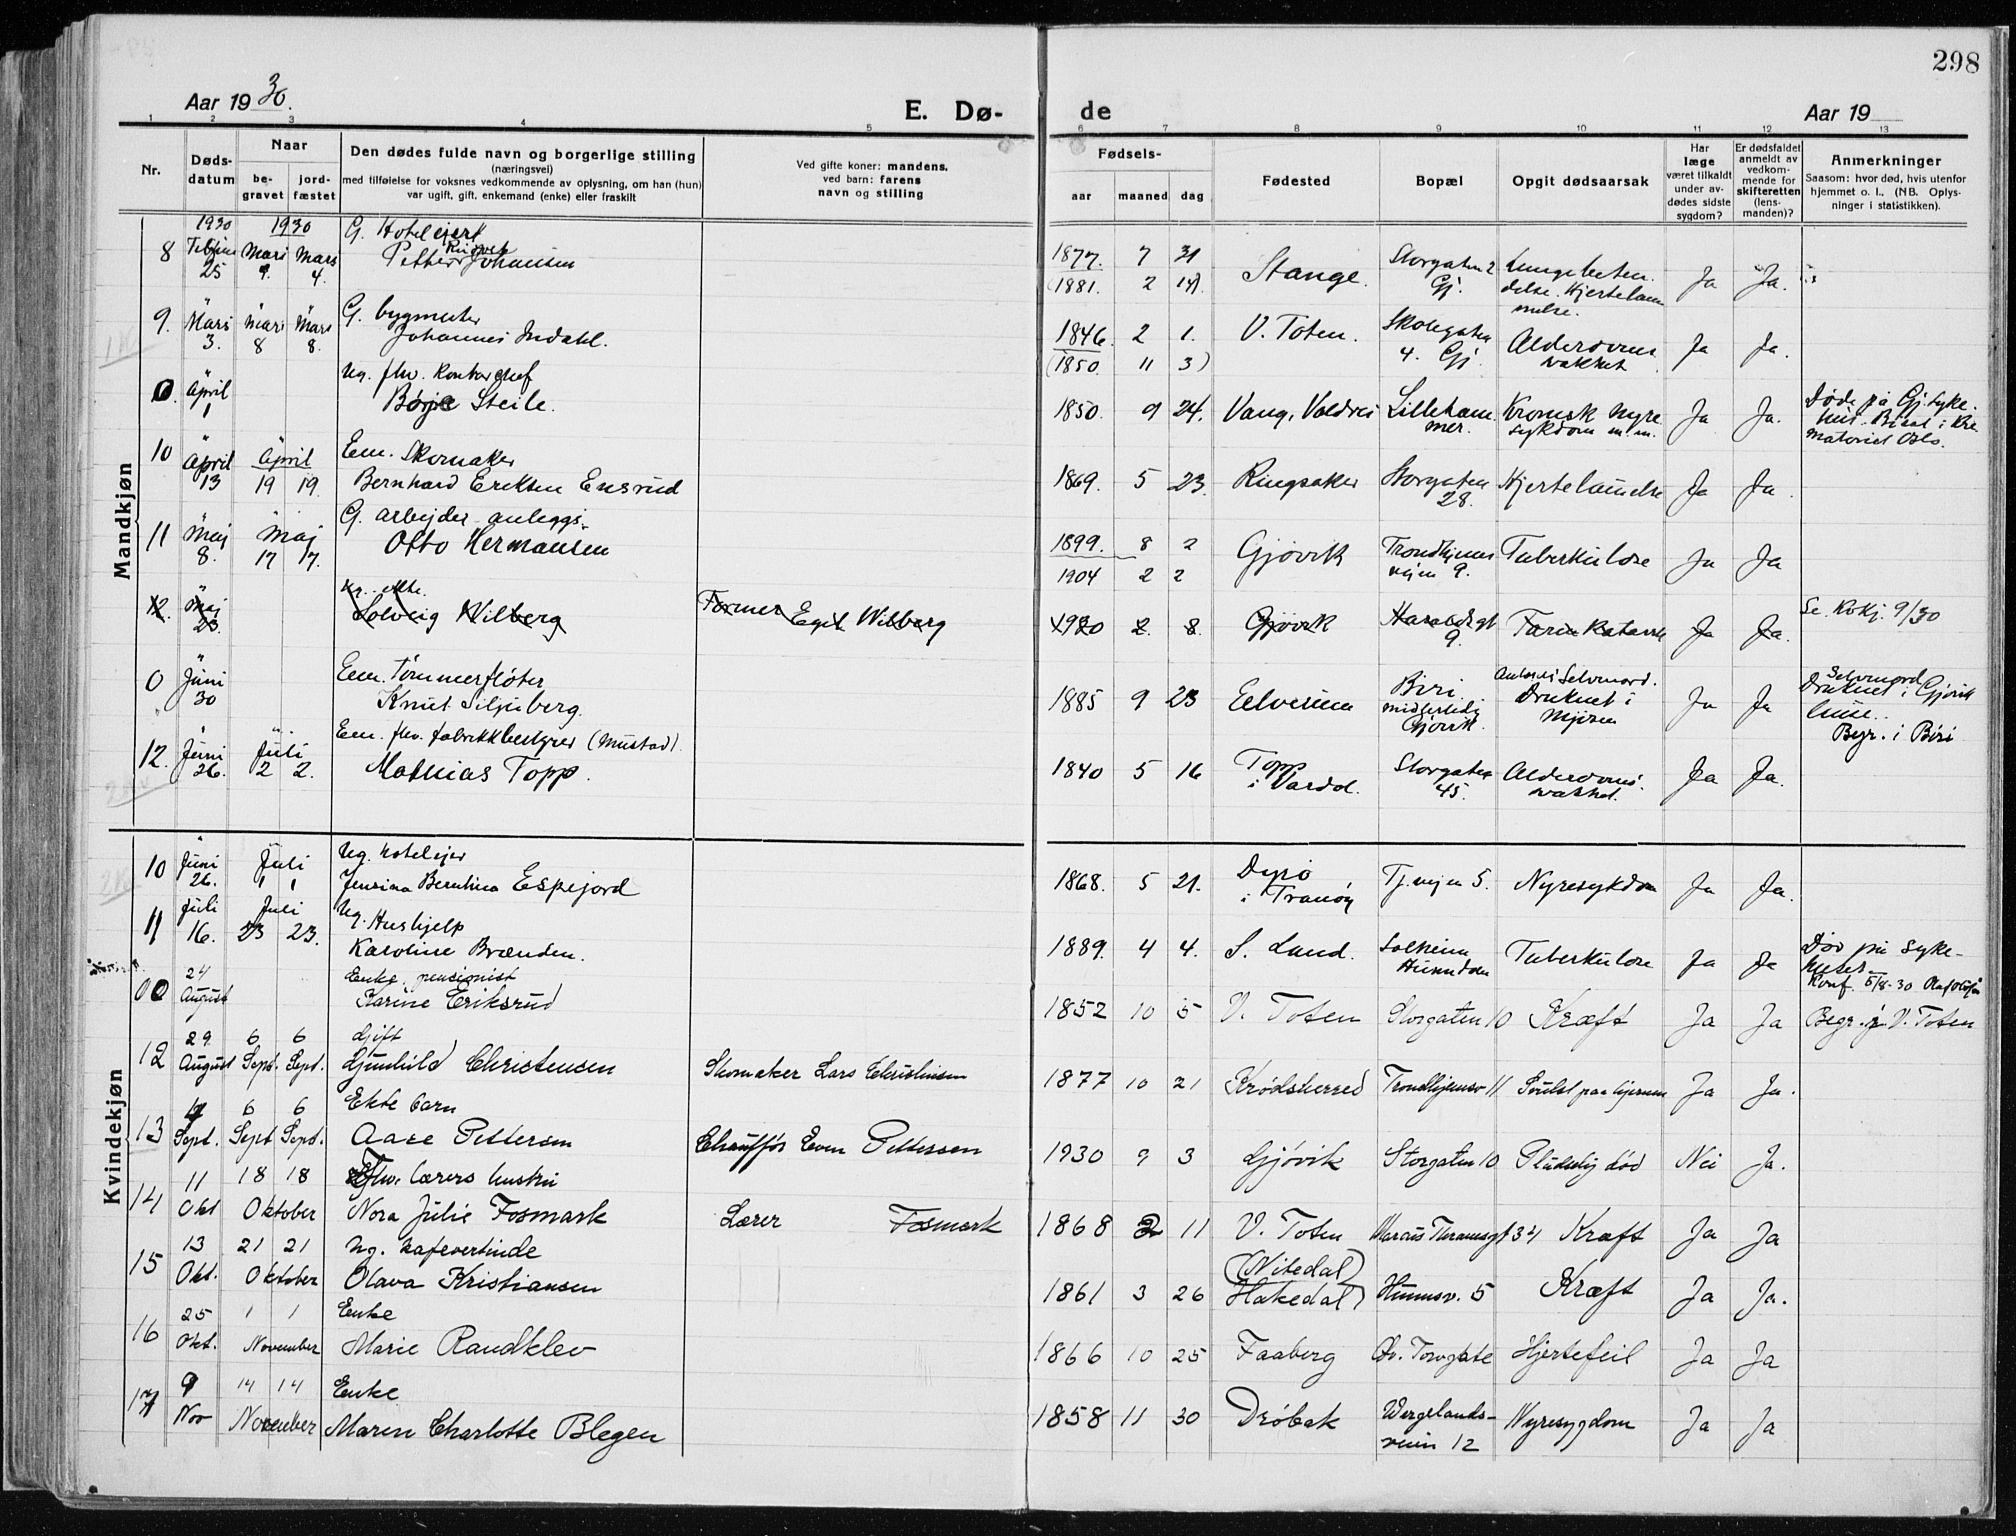 298
Aar 1930.
E. Dø-
de
Aar 19
1 2 3 4 5 6 7 8 9 10 11 12 13
Nr.
Døds-
datum
Naar
be-
gravet
jord-
fæstet
Den dødes fulde navn og borgerlige stilling
(næringsvei)
med tilføielse for voksnes vedkommende av oplysning, om han (hun)
var ugift, gift, enkemand (enke) eller fraskilt
Ved gifte koner: mandens,
ved barn: farens
navn og stilling
Fødsels-
aar
maaned
dag
Fødested
Bopæl
Opgit dødsaarsak
Har
læge
været tilkaldt
under av-
dødes sidste
sygdom?
Er dødsfaldet
anmeldt av
vedkom-
mende for
skifteretten
(lens-
manden)?
Anmerkninger
Saasom: hvor død, hvis utenfor
hjemmet o. l., (NB. Oplys-
ninger i statistikken).
Mandkjøn
1930 1930 G. Hotelejer
8 25 Mars 9. Mars 4. Petter Johansen 1877. 7 31 (1881. 2 14) Stange. Storgaten 2 Gj. Ja Ja.
9. Mars 3. Mars 8 Mars 8. G. bygmester
Johannes Indahl. 1846. 2 1. (1850. 11 3) V. Toten. Skolegaten 4. Gj. Ja Ja.
0. April 1 Ug. fhv. kontorchef
Børje Steile. 1850. 9 24. Vang, Valdres Lilleham
mer. Kronisk nyre
sykdom m.m. Ja Ja. Døde på Gj. syke-
hus. Bisat i Kre
matoriet Oslo.
10 April 13 April 19 19. Em. Skomaker
Bernhard Eriksen Ensrud 1869. 5 23. Ringsaker Storgaten
28. Hjertelammelse Ja Ja
11 Maj 8. Maj 17 17. G. arbejder anleggs-
Otto Hermansen 1899. 8 2 1904 2 2 Gjøvik Trondhjems
vejen 9. Tuberkulose Ja Ja
12. Maj 23. ekte.
Solveig Wilberg Former Egil Wilberg 1930 2. 8. Gjøvik Haraldsgt
9. Tarmkatarrh Ja Ja. Se Kokj. 9/30
0 Juni 30 Em. Tømmerfløter
Knut Siljuberg. 1885 9 23 Elverum Biri
midlertidig
Gjøvik Selvmord.
Druknet i
Mjøsen Ja Ja Selvmord
Druknet i Gjøvik
Begr. i Biri
12. Juni 26. Juli 2 2. Em. fhv. fabrikkbestyrer (Mustad).
Mathias Topp. 1840 5 16 Topp
i Vardal. Storgaten
45. Alderdoms-
svakhet. Ja Ja.
Kvindekjøn
10 Juni 26. Juli 1 1 Ug. hotelejer
Jensina Bernhina Espejord 1868. 5 21. Dyrø
i Tranøy Tj.vejen 5. Nyresykdom Ja Ja.
11 Juli 16. Juli 23 23. Ug. Hushjelp
Karoline Brænden. 1889. 4 4. S. Land. Solheim
Hunndalen Tuberkulose Ja Ja Død på syke-
huset.
Konf. 5/8-30
0 24 August Enke, pensionist
Karine Eriksrud 1852 10 5 V. Toten Storgaten 10 Kræft Ja Ja Begr. i V. Toten
12 29. August 6 Sept. 6 Sept. Gift
Gunhild Christensen Skomaker Lars Christensen 1877 10 21 Krødsherred Trondhjemsv 11 Svulst paa hjernen Ja Ja.
13 4 Sept. 6 Sept 6 Sept. Ekte barn
Aase Pettersen Chauffør Even Pettersen 1930 9 3 Gjøvik Storgaten 10 Pludselig død Nei Ja.
14 11 Okt 18 18 Oktober Fhv. lærers hustru
Nora Julie Fosmark Lærer Fosmark 1868 2 11 V. Toten Marcus Thranesgt 34 Kræft Ja Ja
15 13 Okt. 21 21 Oktober Ug. kafevertinde
Olava Kristiansen 1861 3 26 (Nitedal)
Hakedal Hunnsv. 5 Kræft Ja Ja.
16 25 Okt. 1 1 November Enke
Marie Randklev 1866 10 25 Faaberg Øv. Torvgate Hjertefeil Ja Ja
17 9 Nov 14 14 November Enke
Maren Charlotte Blegen 1858 11 30 Drøbak Wergelands-
veien 12 Nyresygdom Ja Ja